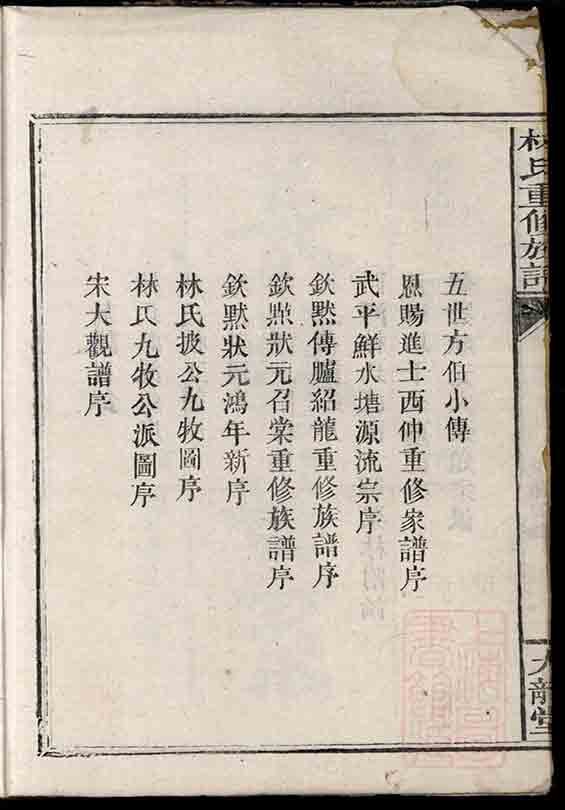 林氏重修族譜
五世方伯小傳
恩賜進士西仲重修家譜序
武平鮮水塘源流宗序
欽㸃傳臚紹龍重修族譜序
欽㸃狀元召棠重修族譜序
欽㸃狀元鴻年新序
林氏披公九牧圖序
林氏九牧公派圖序
宋大觀譜序
九龍堂